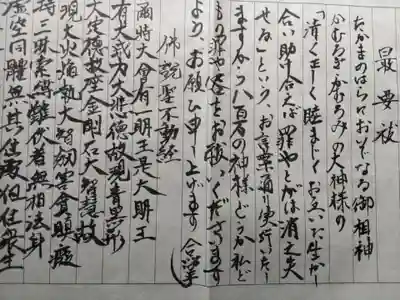 最要祓
たかまのはらにお 御祖神
かむろぎかむろみの大神様の
「清く正しく睦ましくお互いに生かし
合い助け合えば罪やとがは消え失
せる」という、お言葉通り実行
ますから八百万の神様どうか私ど
もの罪や穢をお祓いくださいます
よう、お願い申し上げます 合掌
佛説聖不動経
爾時大會有一明王是大明王
有大威力大悲徳故現青黒形
大定徳故座金剛石大智慧故
現大火焔執大智劔害貪瞋癡
持三昧索縛難伏者無相法身
虚空同體無其住處但住衆生